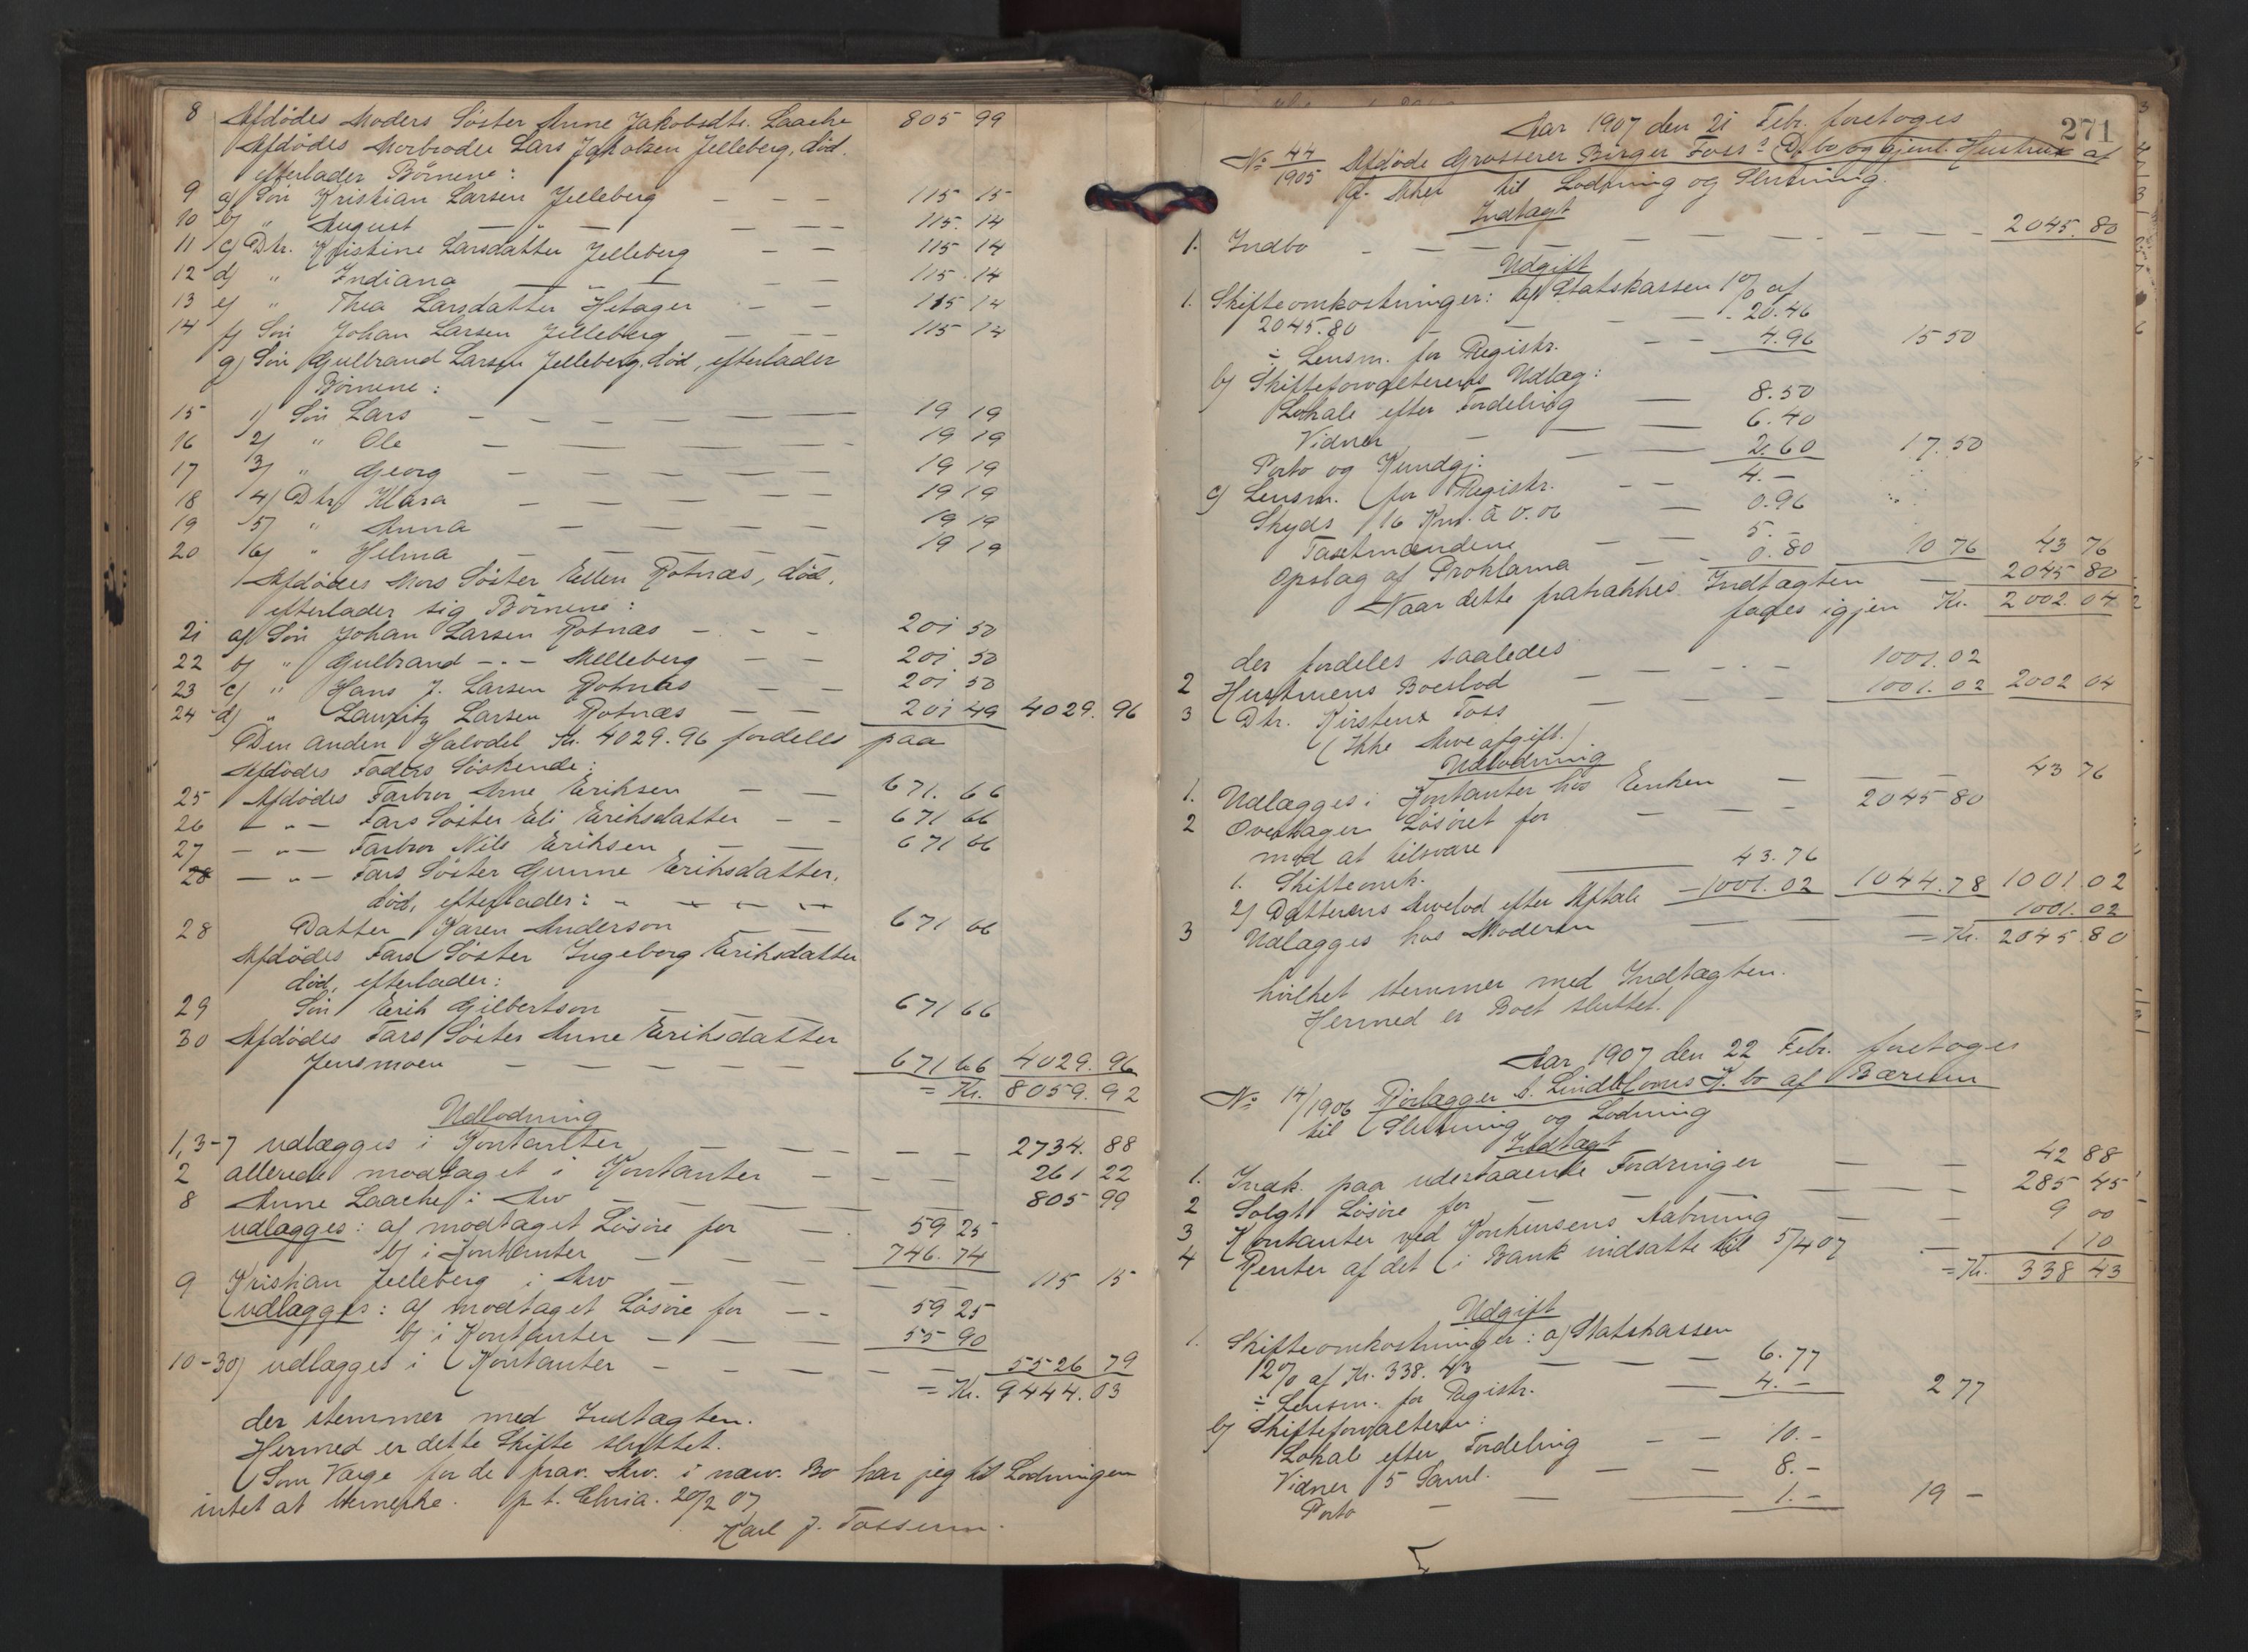 8 Afdødes Moders Söster Anne Jakobsdtr. Laache 805 99
Afdødes Morbroder Lars Jakobsen Jelleberg, död,
efterlader Börnene:
9 a) Sön Kristian Larsen Jelleberg — — — 115 15
10 b) " August — " — — — 115. 14
11 c) Dtr. Kristine Larsdatter Jelleberg — — 115 14
12 d) " Indiana — " — — — 115. 14
13 e) " Thea Larsdatter Hetager — — 115 14
14 f) Sön Johan Larsen Jelleberg — — — 115 14
g) Sön Gulbrand Larsen Jelleberg, död, efterlader
Börnene:
15 1) Sön Lars — — — — 19 19
16 2) " Ole — — — — 19 19
17 3) " Georg — — — — 19 19
18 4) Dtr. Klara — — — — 19 19
19 5) " Anna — — — — 19 19
20 6) " Helma — — — — 19 19
Afdødes Mors Söster Ellen Rotnæs, död,
efterlader sig Börnene:
21 a) Sön Johan Larsen Rotnæs — — — 201 50
22 b) " Gulbrand — " — Melleberg — — 201. 50
23 c) " Hans J. Larsen Rotnæs — — 201 50
24 d) " Lauritz Larsen Rotnæs — — 201 49 4029. 96
Den anden Halvdel Kr. 4029.96 fordeles paa
Afdødes Faders Söskende:
25 Afdödes Farbror Arne Eriksen — — 671. 66
26 — " — Fars Söster Eli Eriksdatter — — 671 66
27 — " — Farbror Nils Eriksen — — 671 66
28 — " — Fars Söster Gunne Eriksdatter,
död, efterlader:
28 Datter Karen Anderson — — 671 66
Afdødes Fars Söster Ingeborg Eriksdatter
död, efterlader:
29 Sön Erik Gilbertson — — 671 66
30 Afdødes Fars Söster Anne Eriksdatter
Jensmoen — — — — — 671 66 4029. 96
= Kr. 8059. 92
Udlodning
1, 3-7 udlægges i Kontanter — — — — 2734. 88
2 allerede modtaget i Kontanter — — — 261 22
8 Anne Laache i Arv — — — 805 99
udlægges: a) modtaget Lösöre for — — 59 25
b) i Kontanter — — — 746. 74
9 Kristian Jelleberg i Arv — — — 115 15
udlægges: a) modtaget Lösöre for — — 59 25
b) i Kontanter — — — 55 90
10-30) udlægges i Kontanter — — — — 5526 79
= Kr. 9444. 03
der stemmer med Indtægten.
Hermed er dette Skifte sluttet.
Som Værge for de frav. Arv. i nævn. Bo har jeg til Lodningen
intet at bemerke. p. t. Chria. 20/2 07
Karl J. Fossum.
271
Aar 1907 den 21 Febr. foretoges
No 44/1905 Afdöde Grosserer Birger Foss' D. bo og gjenl. Hustrus af
af Aker til Lodning og Slutning.
Indtægt
1. Indbo — — — — — — — — 2045. 80
Udgift
1. Skifteomkostninger: a) Statskassen 1% af
2045.80 — — — 20.46
÷ Lensm. for Registr. — — 4.96 15 50
b) Skifteforvalterens Udlæg:
Lokale efter Fordeling — 8.50
Vidner — — — 6.40
Porto og Kundgj. — — 2.60 17. 50
c) Lensm. for Registr. — — 4. —
Skyds 16 Km. à 0.06 — 0.96
Taxtmændene — — 5. —
Opslag af Proklama — — 0.80 10 76 43 76
Naar dette fratrækkes Indtægten — 2045 80
faaes igjen Kr. 2002. 04
der fordeles saaledes
2 Hustruens Boeslod — — — — 1001. 02
3 Dtr. Kirsten Foss — — — 1001. 02 2002 04
(Ikke Arveafgift.)
Udlodning
1. Udlægges i Kontanter hos Enken — — — 43 76
2 Overtager Lösöret for — — — 2045 80
mod at tilsvare
1. Skifteomk. — 43.76
2) Datterens Arvelod efter Aftale — 1001. 02 1044.78 1001. 02
3 Udlægges hos Moderen — — 1001. 02
= Kr. 2045. 80
hvilket stemmer med Indtægten.
Hermed er Boet sluttet.
Aar 1907 den 22 Febr. foretoges
No 14/1906 Rörlægger S. Lindbloms K. bo af Bærum
til Slutning og Lodning
Indtægt
1. Indk. paa udestaaende Fordringer — — 42 88
2 Solgt Lösöre for — — — — 285 45
3 Kontanter ved Konkursens Aabning — — 9 00
4 Renter af det i Bank indsatte til 5/4 07 — 1 10
= Kr. 338 43
Udgift
1. Skifteomkostninger: a) Statskassen
2% af Kr. 338. 43 — — — 6. 77
÷ Lensm. for Registr. — 4. — 2 77
b) Skifteforvalteren:
Lokale efter Fordeling — — 10. —
Vidner 5 Saml. — — 8. —
Porto — — 1. — 19 —